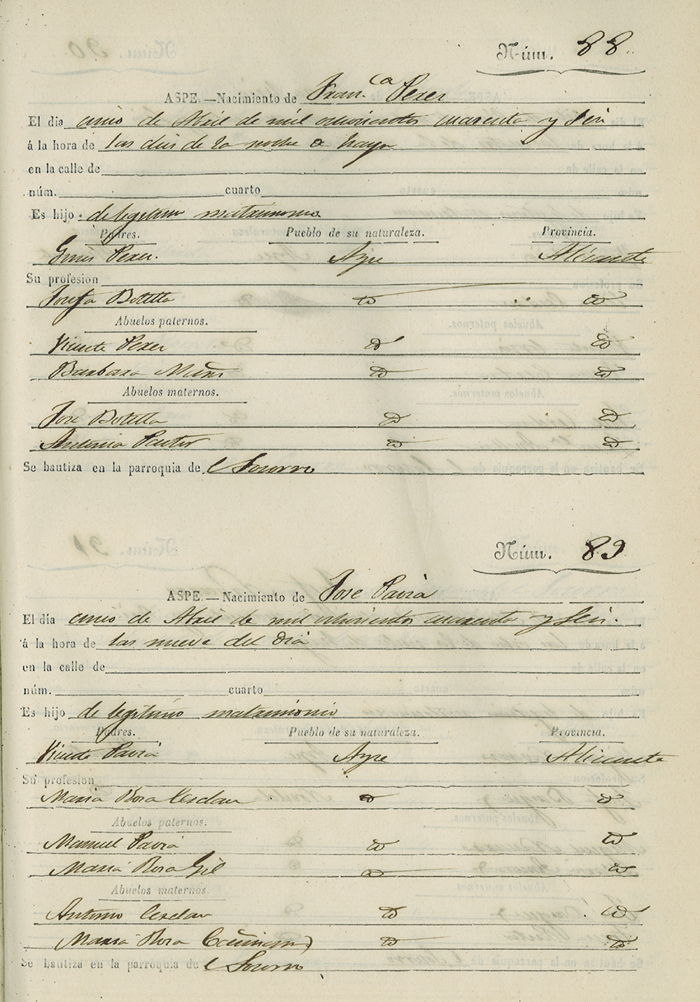 Núm. 88.
ASPE.—Nacimiento de Fran.ca Perez
El día cinco de Abril de mil ochocientos cuarenta y seis
á la hora de las dies de la noche
en la calle de
núm. cuarto
Es hijo de legitimo matrimonio
Padres. Pueblo de su naturaleza. Provincia.
Perez. Aspe Alicante
Su profesion
Josefa Botella
Abuelos paternos.
Vicente Perez
Barbara
Abuelos maternos.
Jose Botella
Antonia Pastor
Se bautiza en la parroquia de l Socorro
Núm. 89
ASPE.—Nacimiento de Jose Pavia
El día cinco de Abril de mil ochocientos cuarenta y seis.
á la hora de las nueve del dia
en la calle de
núm. cuarto
Es hijo de legitimo matrimonio
Padres. Pueblo de su naturaleza. Provincia.
Vicente Pavia Aspe Alicante
Su profesion
Maria Rosa Cerdan
Abuelos paternos.
Manuel Pavia
Maria Rosa Gil
Abuelos maternos.
Antonio Cerdan
Maria Rosa
Se bautiza en la parroquia de l Socorro